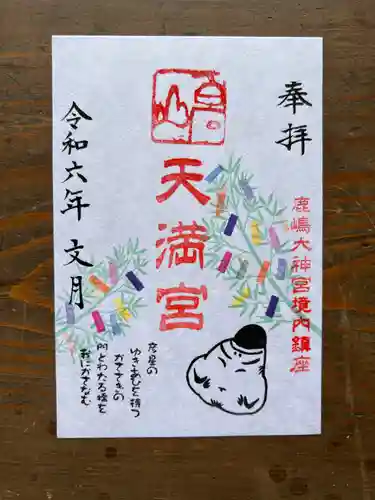 奉拝
鹿嶋大神宮境内鎮座
天満宮
令和六年 文月
彦星の
ゆきあひを待つ
かささぎの
門とわたる橋を
おにかさなむ